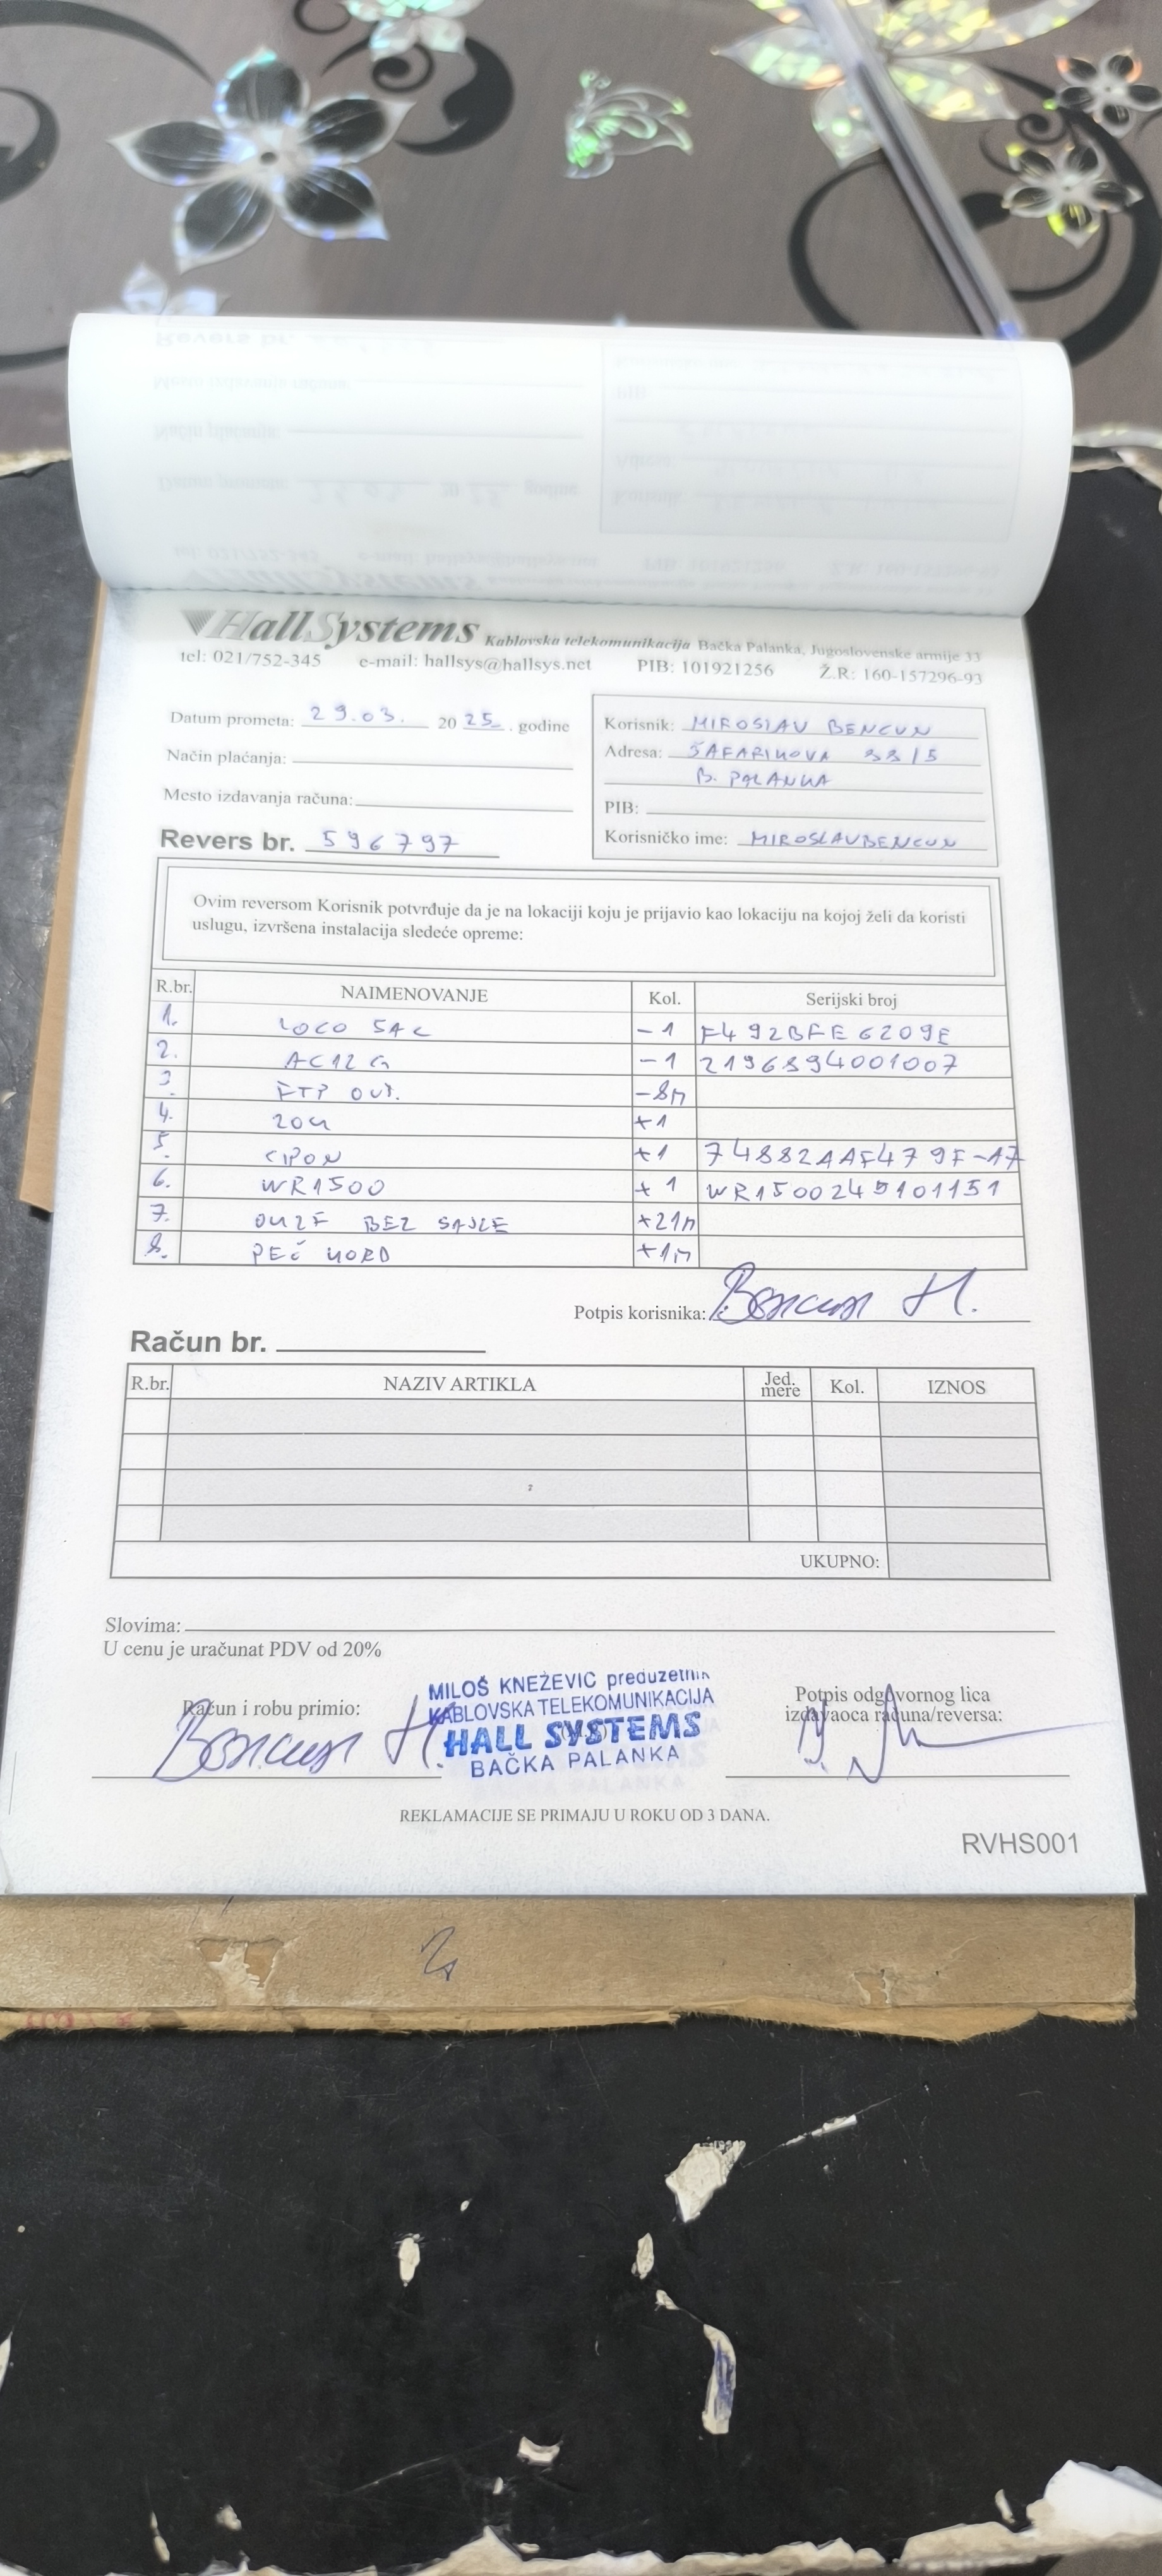 HallSystems Kablovska telekomunikacija Bačka Palanka, Jugoslovenske armije 33
tel: 021/752-345 e-mail: hallsys@hallsys.net PIB: 101921256 Ž.R: 160-157296-93
Datum prometa: 29.03. 2025. godine
Način plaćanja:
Mesto izdavanja računa:
Revers br. 596797
Korisnik: MIROSLAV BENCUN
Adresa: ŠAFARIKOVA 33/5
B. PALANKA
PIB:
Korisničko ime: MIROSLAVBENCUN
Ovim reversom Korisnik potvrđuje da je na lokaciji koju je prijavio kao lokaciju na kojoj želi da koristi
uslugu, izvršena instalacija sledeće opreme:
R.br. NAIMENOVANJE Kol. Serijski broj
1. LOCO 5AC -1 F492BFE6209E
2. AC12G -1 2196894001007
3. FTP OUT. -8m
4. ZOK +1
5. CPON +1 74882AAF479F-17
6. WR1500 +1 WR1500245101151
7. OK2F BEZ SAJLE +21m
8. PEČ KORD +1m
Potpis korisnika: Bencun M.
Račun br.
R.br. NAZIV ARTIKLA Jed. mere Kol. IZNOS
UKUPNO:
Slovima:
U cenu je uračunat PDV od 20%
Račun i robu primio: Bencun M.
MILOŠ KNEŽEVIC preduzetnik
KABLOVSKA TELEKOMUNIKACIJA
HALL SYSTEMS
BAČKA PALANKA
Potpis odgovornog lica
izdavaoca računa/reversa:
REKLAMACIJE SE PRIMAJU U ROKU OD 3 DANA.
RVHS001